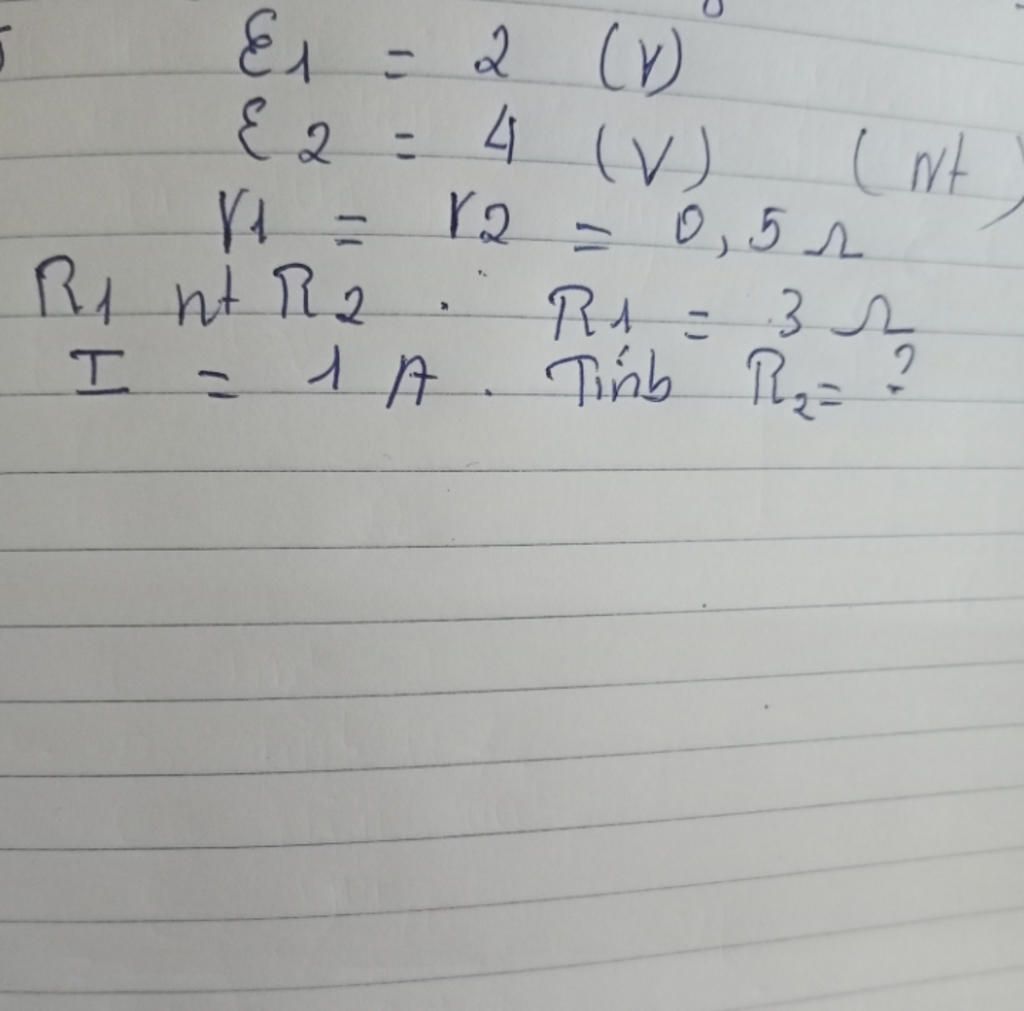 ε1 = 2 (V)
ε2 = 4 (V) (nt)
r1 = r2 = 0,5 Ω
R1 nt R2 . R1 = 3 Ω
I = 1 A . Tính R2 = ?